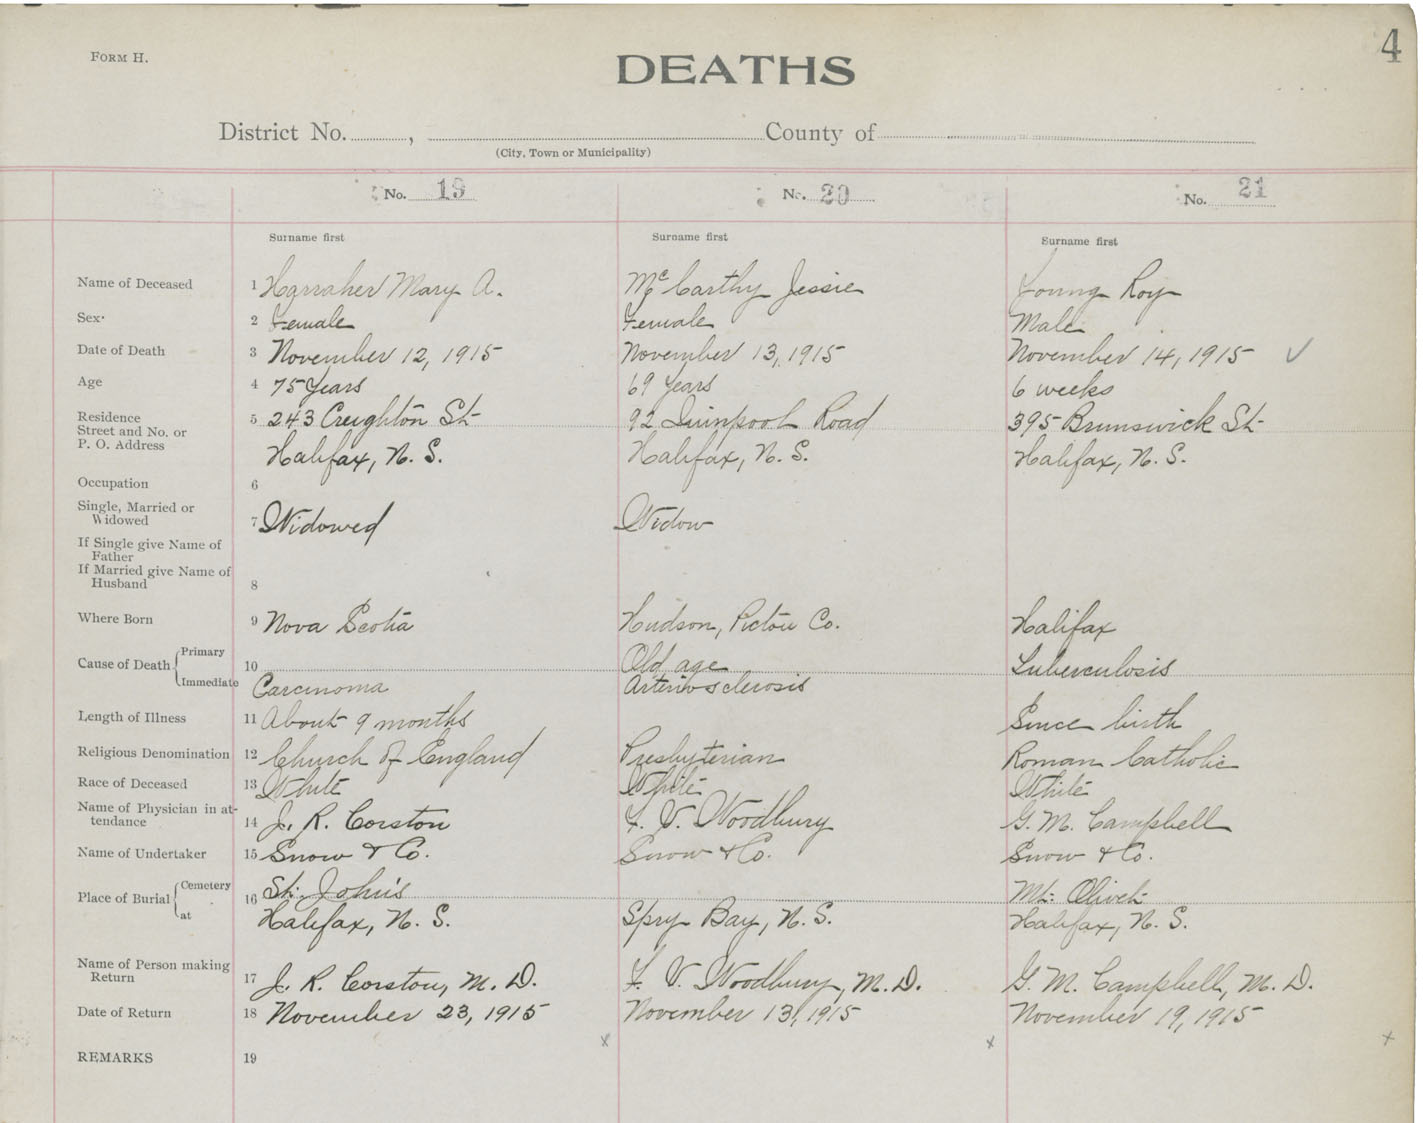 4
FORM H.
DEATHS
District No. , County of
(City, Town or Municipality)
No. 19 No. 20 No. 21
Surname first Surname first Surname first
Name of Deceased 1 Harraher Mary A. McCarthy Jessie Young Roy
Sex 2 Female Female Male
Date of Death 3 November 12, 1915 November 13, 1915 November 14, 1915 ✓
Age 4 75 Years 69 Years 6 weeks
Residence 5 243 Creighton St- 92 Quinpool Road 395 Brunswick St-
Street and No. or
P. O. Address Halifax, N. S. Halifax, N. S. Halifax, N. S.
Occupation 6
Single, Married or
Widowed 7 Widowed Widow
If Single give Name of
Father
If Married give Name of
Husband 8
Where Born 9 Nova Scotia Hudson, Pictou Co. Halifax
Cause of Death Primary 10 Old age Tuberculosis
Immediate Carcinoma Arteriosclerosis
Length of Illness 11 About 9 months Since birth
Religious Denomination 12 Church of England Presbyterian Roman Catholic
Race of Deceased 13 White White White
Name of Physician in at-
tendance 14 J. R. Corston F. V. Woodbury G. M. Campbell
Name of Undertaker 15 Snow & Co. Snow & Co. Snow & Co.
Place of Burial Cemetery 16 St. John's Mt. Olivet
at Halifax, N. S. Spry Bay, N. S. Halifax, N. S.
Name of Person making
Return 17 J. R. Corston, M. D. F. V. Woodbury, M. D. G. M. Campbell, M. D.
Date of Return 18 November 23, 1915 November 13, 1915 November 19, 1915
x x x
REMARKS 19